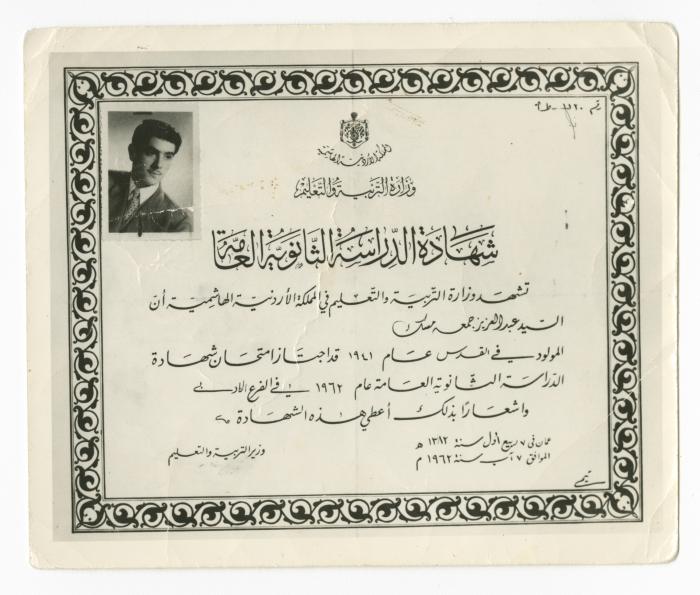 رقم ١١٢٠
المملكة الأردنية الهاشمية
وزارة التربية والتعليم
شهادة الدراسة الثانوية العامة
تشهد وزارة التربية والتعليم في المملكة الأردنية الهاشمية أن
السيد عبد العزيز جمعه
المولود في القدس عام ١٩٤١ قد اجتاز امتحان شهادة
الدراسة الثانوية العامة عام ١٩٦٢ في الفرع الادبي
واشعارًا بذلك أعطي هذه الشهادة
عمان في ٧ ربيع اول سنة ١٣٨٢ ه
الموافق ٧ آب سنة ١٩٦٢ م
وزير التربية والتعليم